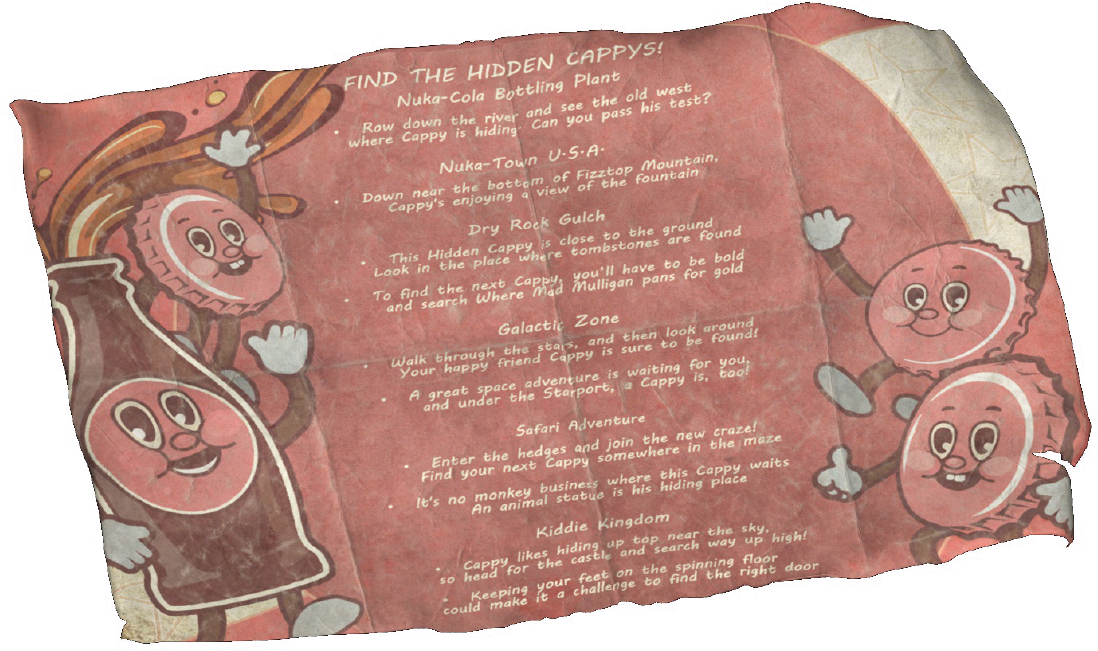 FIND THE HIDDEN CAPPYS!
Nuka-Cola Bottling Plant
• Row down the river and see the old west
where Cappy is hiding. Can you pass his test?
Nuka-Town U.S.A.
• Down near the bottom of Fizztop Mountain,
Cappy's enjoying a view of the fountain
Dry Rock Gulch
• This Hidden Cappy is close to the ground
Look in the place where tombstones are found
• To find the next Cappy, you'll have to be bold
and search Where Mad Mulligan pans for gold
Galactic Zone
• Walk through the stars, and then look around
Your happy friend Cappy is sure to be found!
• A great space adventure is waiting for you,
and under the Starport, a Cappy is, too!
Safari Adventure
• Enter the hedges and join the new craze!
Find your next Cappy somewhere in the maze
• It's no monkey business where this Cappy waits
An animal statue is his hiding place
Kiddie Kingdom
• Cappy likes hiding up top near the sky,
so head for the castle and search way up high!
• Keeping your feet on the spinning floor
could make it a challenge to find the right door